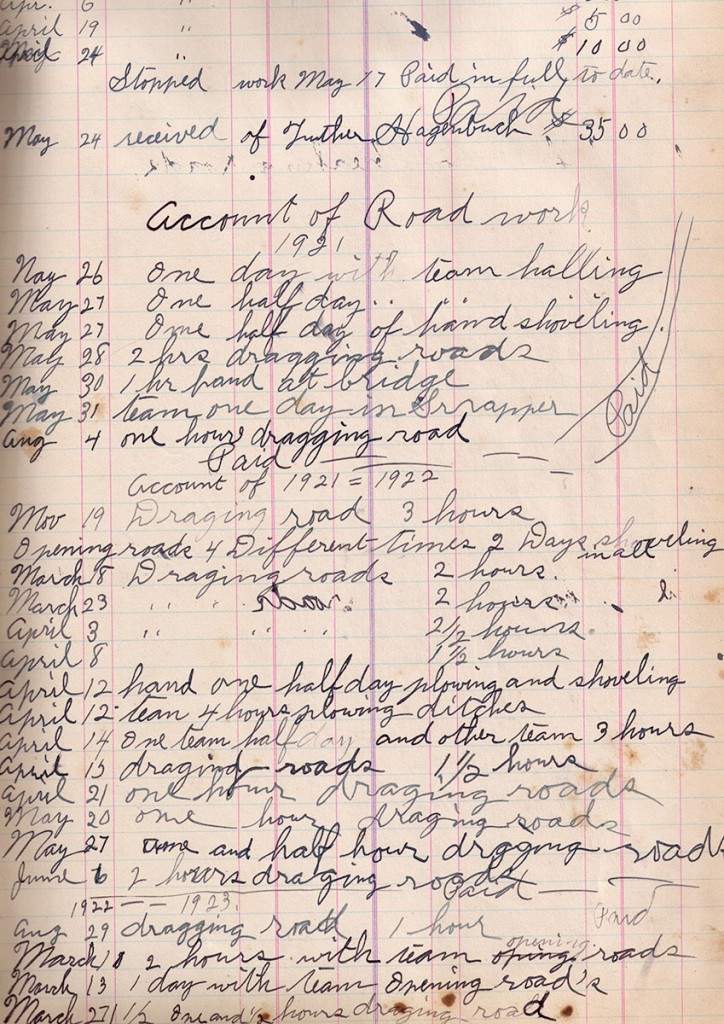 Apr. 6 "
April 19 " $ 5 00
April 24 " $ 10 00
Stopped work May 17 Paid in full to date.
Paid
May 24 received of Luther Hagenbuch $ 35 00
Account of Road work
1921
May 26 One day with team halling
May 27 One half day " "
May 27 One half day of hand shoveling.
May 28 2 hrs dragging roads
May 30 1 hr hand at bridge
May 31 team one day in Scrapper
Paid
Aug 4 one hour dragging road
Paid
Account of 1921 = 1922
Nov 19 Draging road 3 hours
Opening roads 4 Different times 2 Days shoveling
in all
March 8 Draging roads 2 hours.
March 23 " " roads 2 hours
April 3 " " " 2 1/2 hours
April 8 1 1/2 hours
April 12 hand one half day plowing and shoveling
April 12 team 4 hours plowing ditches
April 14 One team half day and other team 3 hours
April 15 draging roads 1 1/2 hours
April 21 one hour draging roads
May 20 one hour draging roads
May 27 one and half hour drgging roads
June 6 2 hours draging roads
Paid
1922 — — 1923.
Aug 29 dragging road 1 hour Paid
opening
March 18 2 hours with team oping roads
March 13 1 day with team Opening road's
March 27 1 1/2 One and 1/2 hours draging road